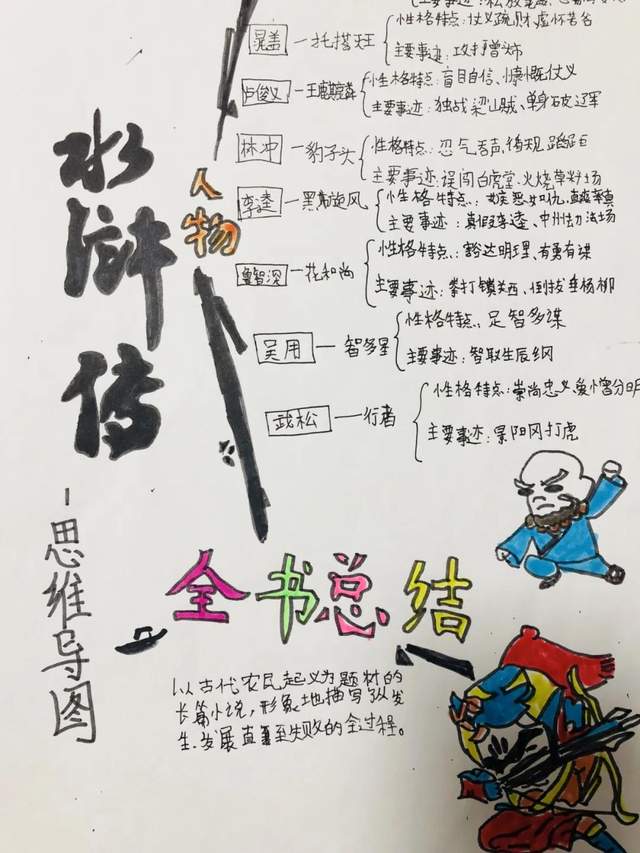 水浒传
-思维导图
人物
晁盖一托塔天王
性格特点:仗义疏财 虚怀若谷
主要事迹:攻打曾头市
卢俊义一玉麒麟
性格特点:盲目自信、慷慨仗义
主要事迹:独战梁山贼、单身破辽军
林冲一豹子头
性格特点:忍气吞声、循规蹈矩
主要事迹:误闯白虎堂、火烧草料场
李逵一黑旋风
性格特点:嫉恶如仇、
主要事迹:真假李逵、中州劫法场
鲁智深一花和尚
性格特点:豁达明理、有勇有谋
主要事迹:拳打镇关西、倒拔垂杨柳
吴用一智多星
性格特点、足智多谋
主要事迹:智取生辰纲
武松一行者
性格特点:崇尚忠义、爱憎分明
主要事迹:景阳冈打虎
全书总结
以古代农民起义为题材的
长篇小说,形象地描写了从发
生、发展直至失败的全过程。